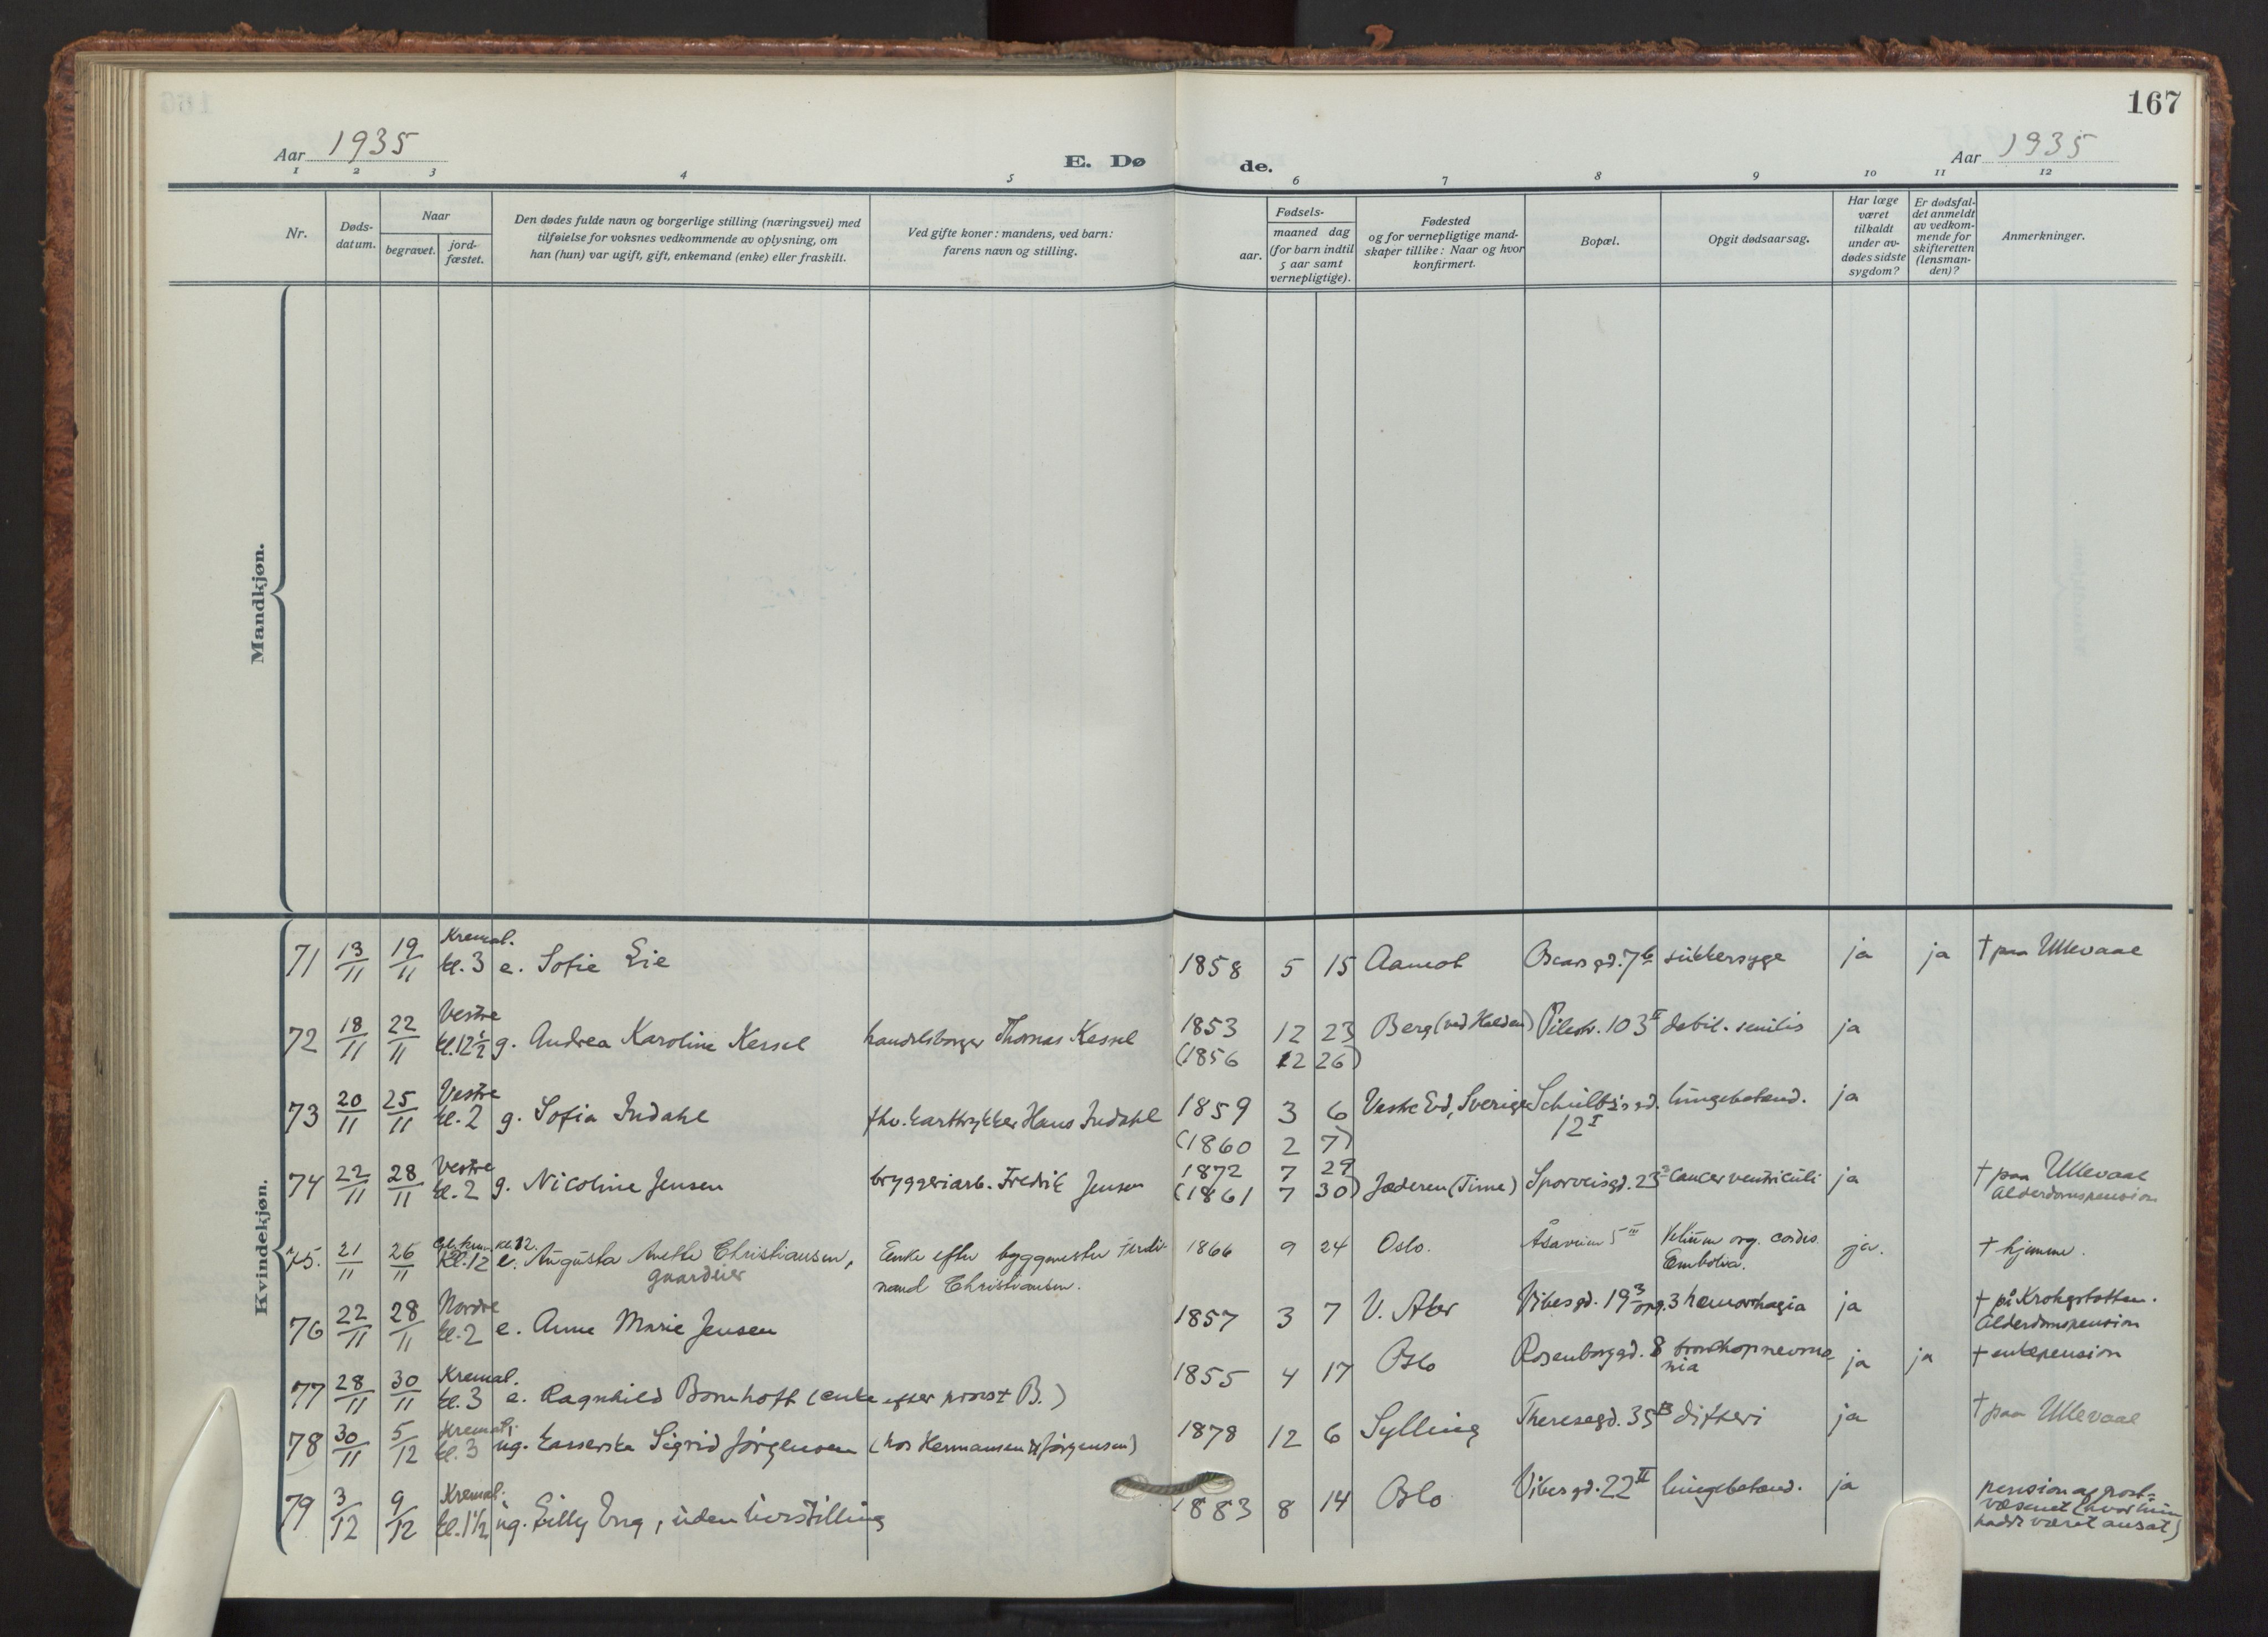 167
Aar 1935
E. Dø de.
Aar 1935
1 2 3 4 5 6 7 8 9 10 11 12
Nr.
Døds-
datum.
Naar
begravet.
jord-
fæstet.
Den dødes fulde navn og borgerlige stilling (næringsvei) med
tilføielse for voksnes vedkommende av oplysning, om
han (hun) var ugift, gift, enkemand (enke) eller fraskilt.
Ved gifte koner: mandens, ved barn:
farens navn og stilling.
Fødsels-
aar.
maaned dag
(for barn indtil
5 aar samt
vernepligtige).
Fødested
og for vernepligtige mand-
skaper tillike: Naar og hvor
konfirmert.
Bopæl.
Opgit dødsaarsag.
Har læge
været
tilkaldt
under av-
dødes sidste
sygdom?
Er dødsfal-
det anmeldt
av vedkom-
mende for
skifteretten
(lensman-
den)?
Anmerkninger.
Mandkjøn.
Kvindekjøn.
Kremat.
71 13/11 19/11 kl. 3 e. Sofie Lie 1858 5 15 Aamot Oscarsgd. 7 sukkersyge ja ja † paa Ullevaal
Vestre
72 18/11 22/11 kl. 12½ g. Andrea Karoline Kessel handelsborger Thomas Kessel 1853 12 23 Berg (ved Halden) Pilestr. 103 II debil. senilis ja
(1856 12 26)
Vestre
73 20/11 25/11 kl. 2 g. Sofia Indahl fhv. karttrykker Hans Indahl 1859 3 6 Vestre Ed, Sverige Schultz's gd. lungebetænd. ja
12 I
(1860 2 7)
Vestre
74 22/11 28/11 kl. 2 g. Nicoline Jensen bryggeriarb. Fredrik Jensen 1872 7 29 Jæderen (Time) Sporveisgd. 23 Cancer ventriculi ja † paa Ullevaal
(1861 7 30) Alderdomspension
kl. 12.
75. 21/11 26/11 kl. 12 e. Augusta Anette Christiansen, Enke efter byggmester Ferdi- 1866 9 24 Oslo. Åsaveien 5 III Vitium org. cordis. ja. † hjemme.
gaardeier nand Christiansen. Embolia.
Nordre
76 22/11 28/11 kl. 2 e. Anne Marie Jensen 1857 3 7 V. Aker Vibesgd. 19 3 opg. 3 hæmorrhagia ja † på Krohgstøtten.
Alderdomspension
Kremat.
77 28/11 30/11 kl. 3 e. Ragnhild Bomhoff (enke efter provst B.) 1855 4 17 Oslo Rosenborggd. 8 bronkopnevmo-
nia ja ja † enkepension
Kremat.
78 30/11 5/12 kl. 3 ug. kasserske Sigrid Jørgensen (hos Hermansen & Jørgensen) 1878 12 6 Sylling Theresegd. 35 B difteri ja † paa Ullevaal
Kremat.
79 3/12 9/12 kl. 1½ ug. Lilly Eng, uden livsstilling 1883 8 14 Oslo Vibesgd. 22 II lungebetænd. ja pension af post-
væsenet (hvor hun
hadde været ansat)